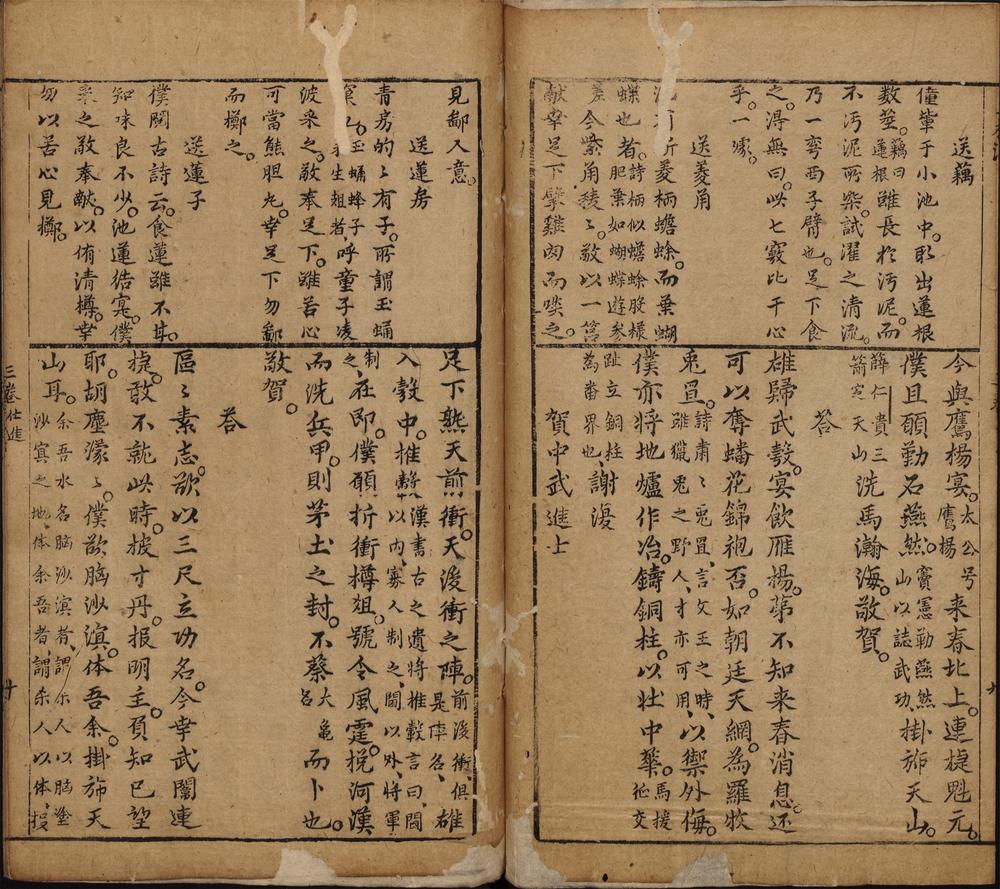 送藕
僮輩于小池中。取出蓮根
数莖。藕曰蓮根雖長於污泥。而
不污泥所染。試濯之清流。
乃一弯西子臂也。足下食
之。得無曰。此七竅比干心
乎。一嚎。
送菱角
有新菱柄蟾蜍。而葉蝴
蝶也者。詩柄似蟾蜍股様肥葉如蝴蝶遊參
差今紫角稜々。敬以一筥
献。幸足下擘雞肉而啖之。
今與鷹揚宴。太公号鷹揚来春北上。連捷魁元。
僕且願勤石燕然。竇憲勒燕然山以誌武功掛斾天山。
薛仁貴三箭定天山洗馬瀚海。敬賀。
答
雄歸武彀。宴飲雁揚。第不知来春消息。还
可以奪蟠花錦袍否。如朝廷天網。為羅收
兎罝。詩肅々兎罝，言文王之時，雖獵兎之野人，才亦可用，以禦外侮。
僕亦将地爐作冶。鑄銅柱。以壮中華。馬援征交
趾立銅柱為番界也，謝謾
賀中武進士
見鄙入意。
送蓮房
青房的々有子。所謂玉蛹
窠 玉蛹蜂子 生 者，呼童子凌
波采之。敬奉足下。雖苦心
可當熊胆丸。幸足下勿鄙
而擲之。
送蓮子
僕閱古詩云。食蓮雖不甘。
知味良不少。池蓮結实。僕
采之敬奉献。以侑清樽。幸
勿以苦心見擲。
足下熊天前衝。天後衝之陣。前後衝，俱是陣名，雄
入彀中。推轂漢書古之遺将推轂言曰，閫以内，寡人制之，閫以外，将軍
制之，在即。僕願折衝樽俎。號令風霆。挽河漢
而洗兵甲。則茅土之封。不蔡大龜名而卜也。
敬賀。
答
區々素志。欲以三尺立功名。今幸武闈連
捷。敢不就此時。披寸丹。报明主。負知已望
耶。胡塵濛々。僕欲脳沙漠。体吾余。掛斾天
山耳。余吾水名脳沙漠者，謂尒人以脳塗沙漠之地，体余吾者，謂杀人以体投
三巻仕進 十